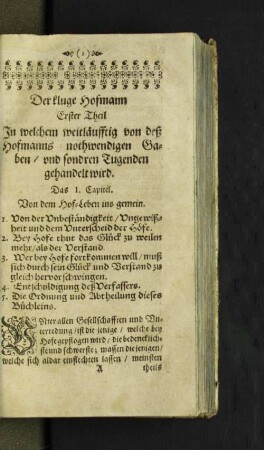 (1)
Der kluge Hofmann
Erster Theil
In welchem weitläuffig von deß
Hofmanns nothwendigen Ga-
ben / und sondren Tugenden
gehandelt wird.
Das I. Capitel.
Von dem Hof-Leben ins gemein.
1. Von der Unbeständigkeit / Ungewiß-
heit und dem Unterscheid der Höfe.
2. Bey Hofe thut das Glück zu weilen
mehr / als der Verstand.
3. Wer bey Hofe fortkommen will / muß
sich durch sein Glück und Verstand zu
gleich hervor schwingen.
4. Entschuldigung deß Verfassers.
5. Die Ordnung und Abtheilung dieses
Büchleins.
Unter allen Gesellschafften und Un-
terredung / ist die jenige / welche bey
Hofe gepflogen wird / die bedencklich-
ste und schwerste; massen die jenigen /
welche sich aldar einflechten lassen / meinsten
A theils